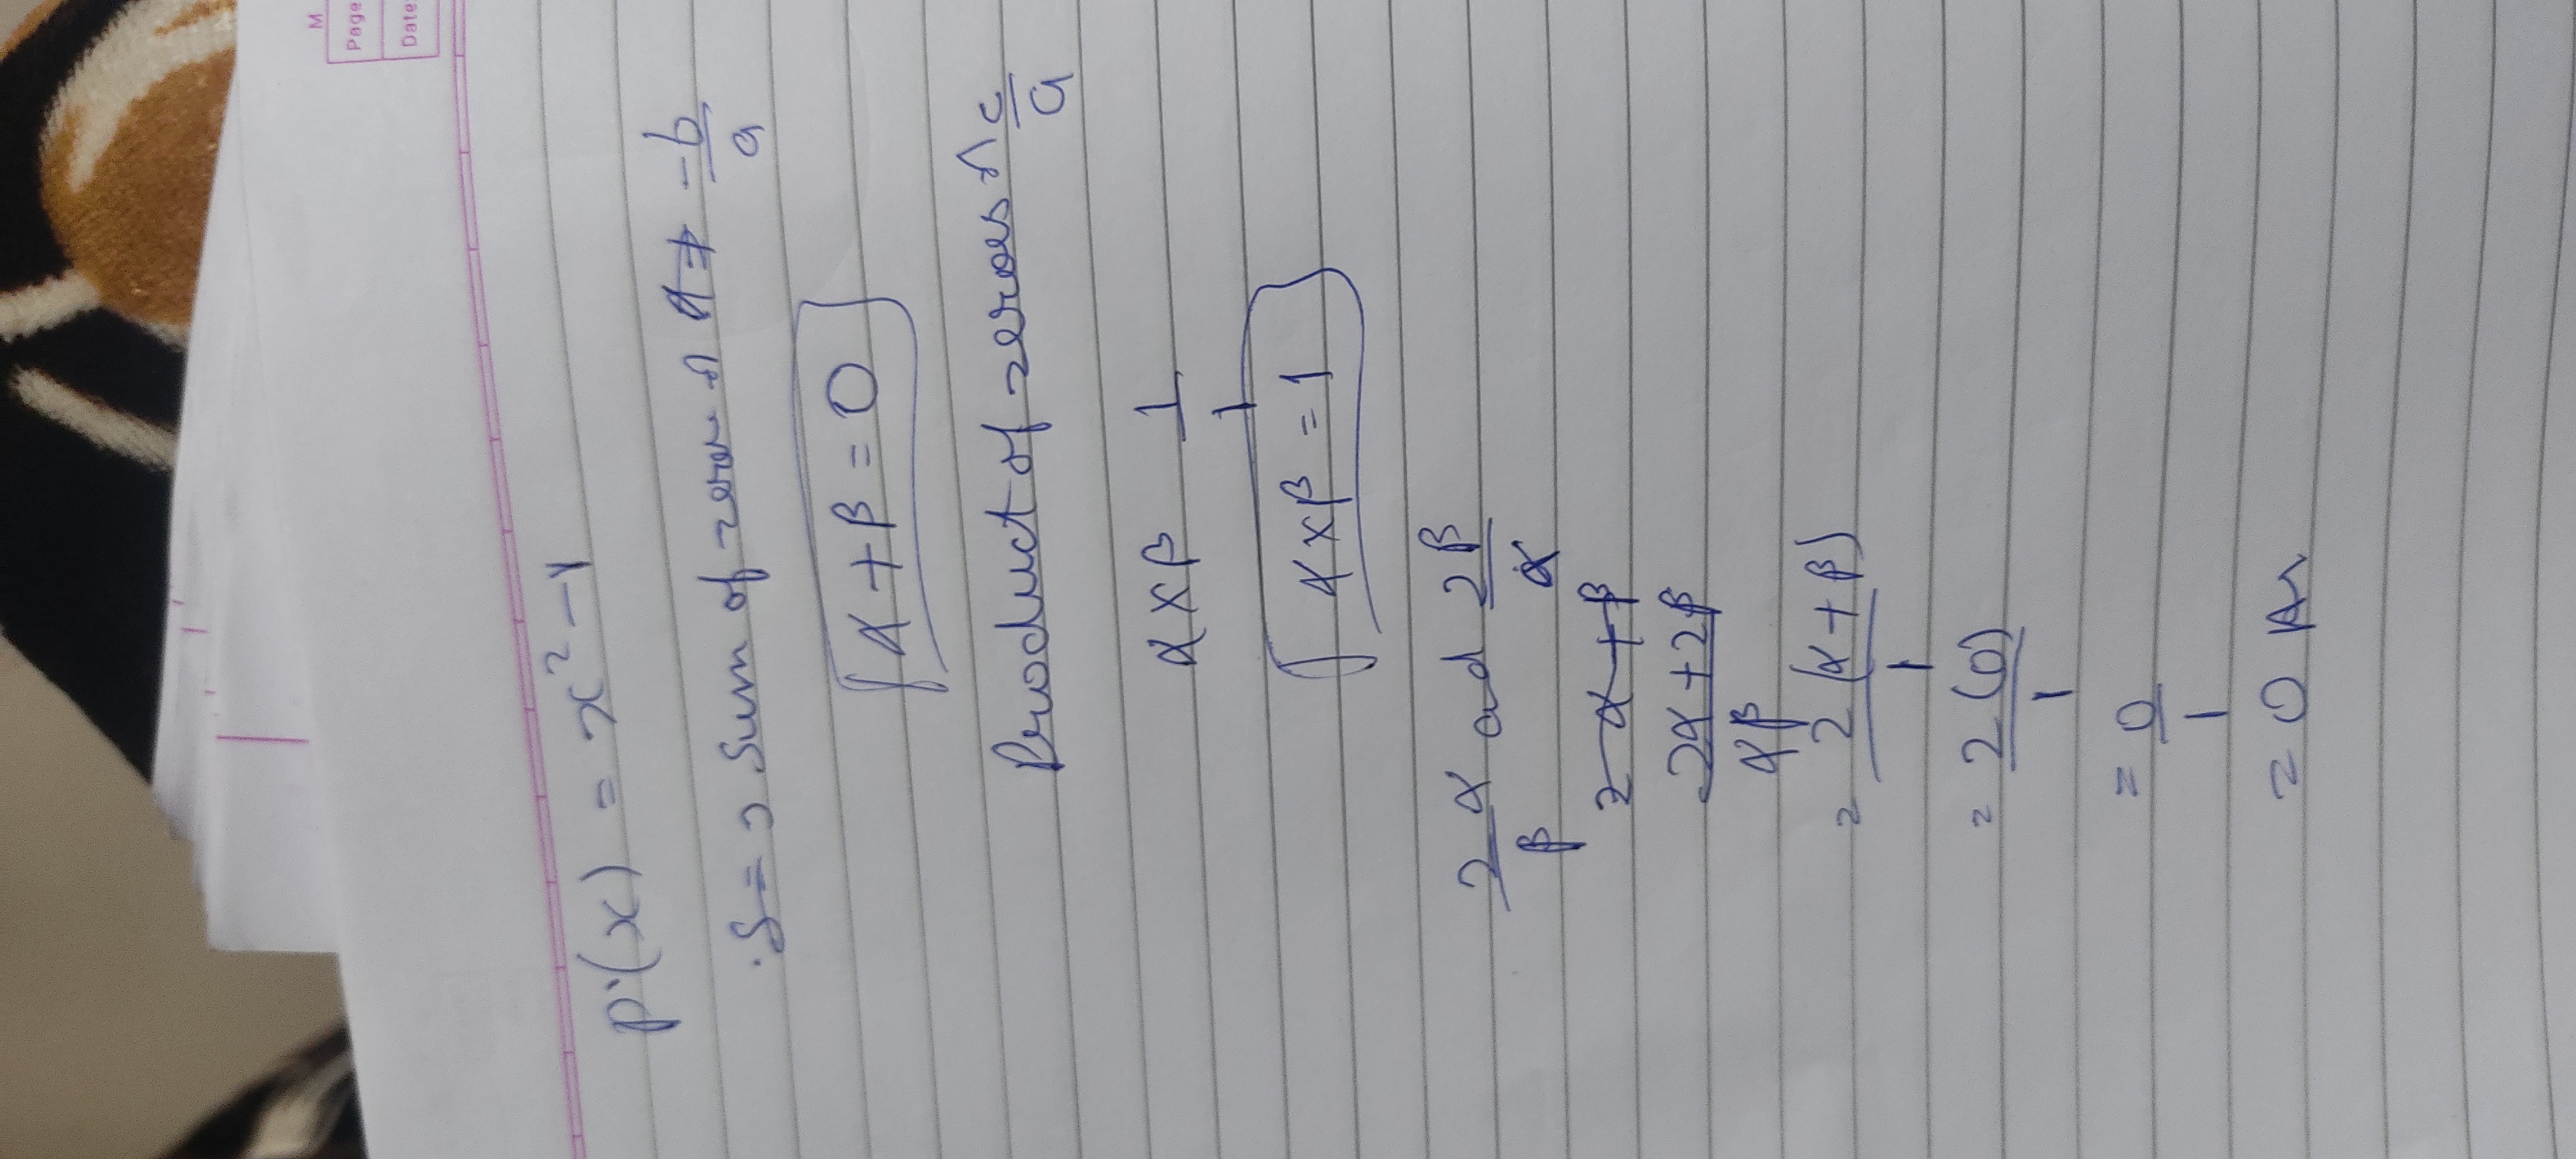 M
Page
Date
p(x) = x² - 1
S => Sum of zeros => -b/a
α + β = 0
Product of zeroes => c/a
α x β 1/1
α x β = 1
2α/β and 2β/α
2 α + β
2α + 2β/αβ
= 2(α + β)/1
= 2(0)/1
= 0/1
= 0 An